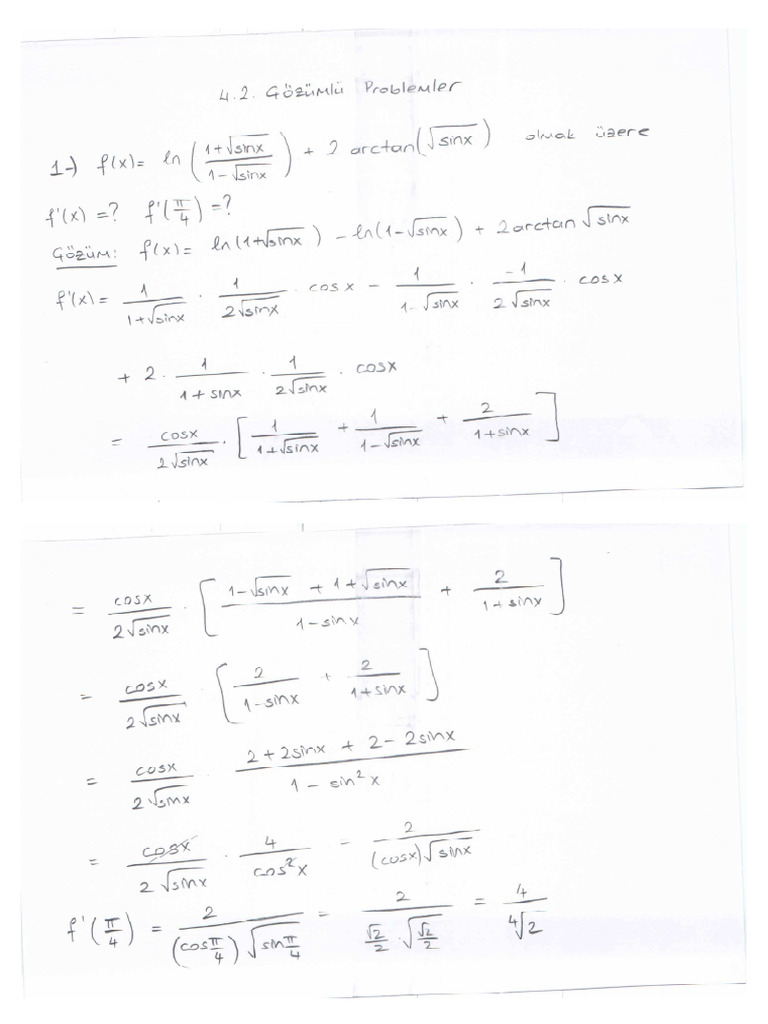 4.2. Çözümlü Problemler
1-) f(x) = ln((1+√sinx)/(1-√sinx)) + 2 arctan(√sinx) olmak üzere
f'(x) = ? f'(π/4) = ?
Çözüm: f(x) = ln(1+√sinx) - ln(1-√sinx) + 2arctan√sinx
f'(x) = 1/(1+√sinx) · 1/(2√sinx) · cosx - 1/(1-√sinx) · -1/(2√sinx) · cosx
+ 2 · 1/(1+sinx) · 1/(2√sinx) · cosx
= cosx/(2√sinx) · [1/(1+√sinx) + 1/(1-√sinx) + 2/(1+sinx)]
= cosx/(2√sinx) · [(1-√sinx + 1+√sinx)/(1-sinx) + 2/(1+sinx)]
= cosx/(2√sinx) · [2/(1-sinx) + 2/(1+sinx)]
= cosx/(2√sinx) · (2+2sinx + 2-2sinx)/(1-sin²x)
= cosx/(2√sinx) · 4/cos²x = 2/((cosx)√sinx)
f'(π/4) = 2/((cosπ/4)√(sinπ/4)) = 2/(√2/2 · √(√2/2)) = 4/⁴√2